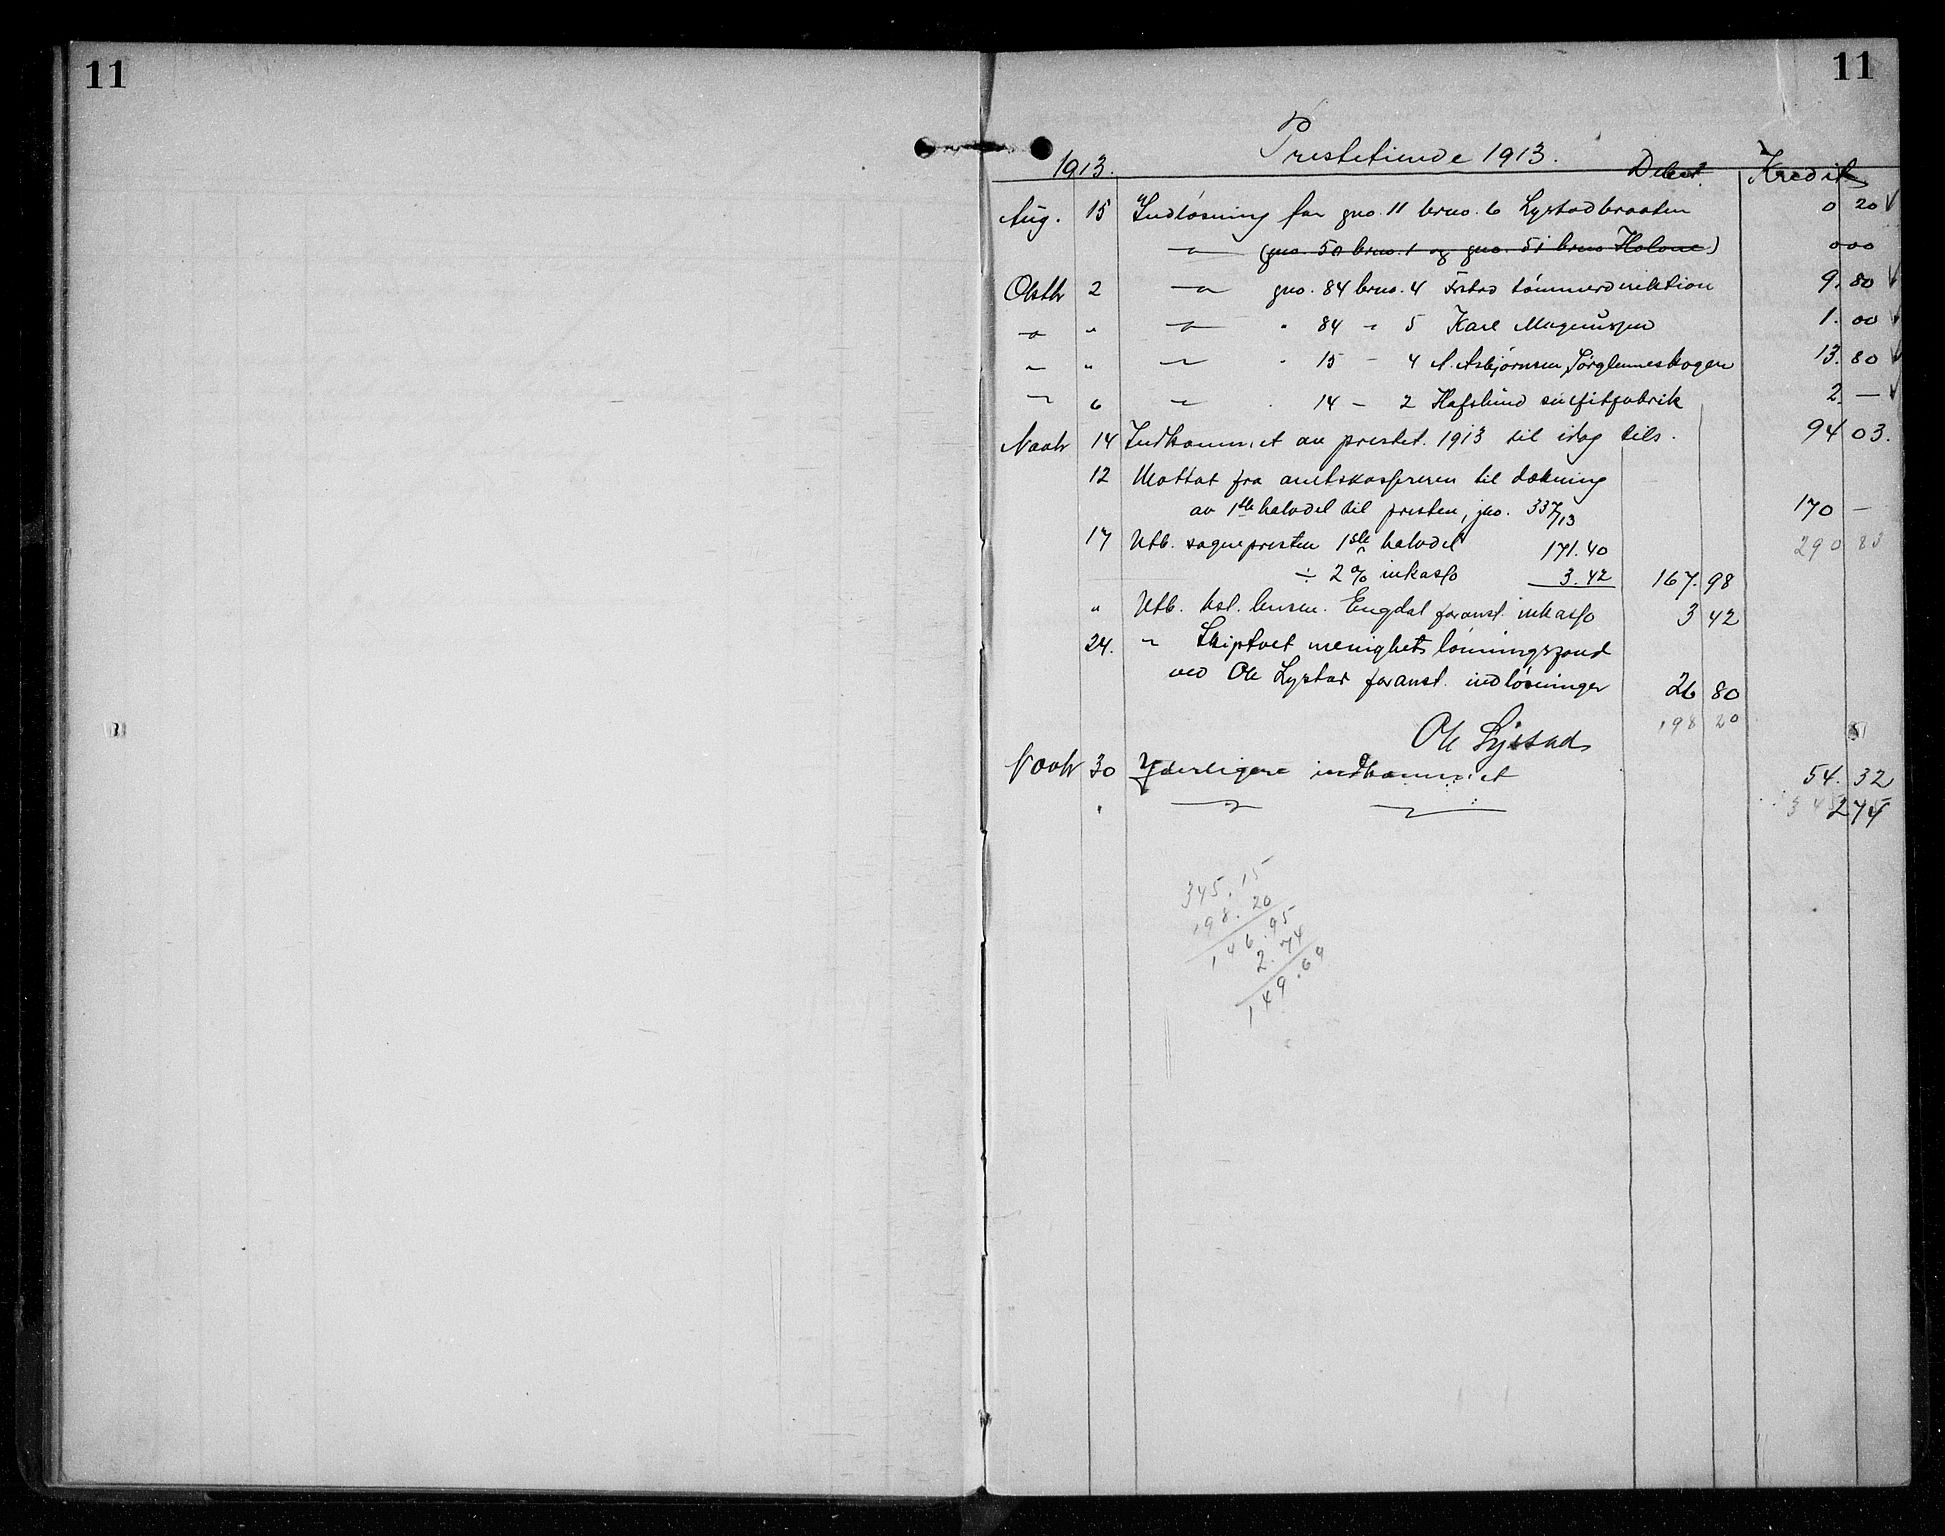 11
11
Prestetiende 1913.
1913. Debet. Kredit
Aug. 15 Indløsning for gno. 11 brno. 6 Lystadbraaten 0 20
–„– (gno. 50 brno. 1 og gno. 51 brno Holone) 000
Oktbr 2 –„– gno. 84 brno. 4 Fristad tømmerdirektion 9. 80
–„– „ –„– „ 84 „ 5 Karl Magnussen 1. 00
–„– „ –„– „ 15 – 4 A. Asbjørnsen, Sørglenneskogen 13. 80
–„– 6 –„– „ 14 – 2 Hafslund sulfitfabrik 2. —
Novbr 14 Indkommet av prestet. 1913 til idag tils. 94 03.
12 Mottat fra amtskassereren til dækning
av 1ste halvdel til presten, jno. 337/13 170 —
17 Utb. sognepresten 1ste halvdel 171.40 290 83
÷ 2 % inkasso 3.42 167. 98
„ Utb. hst. lensm. Engdal foranst. inkasso 3 42
24. „ Skiptvet menighets lønningsfond
ved Ole Lystad foranst. indløsninger 26 80
198 20
Ole Lystad
Novbr 30 Yderligere indkommet 54. 32
„ –„– –„– 2 74
345.15
198.20
146.95
2.74
149.69